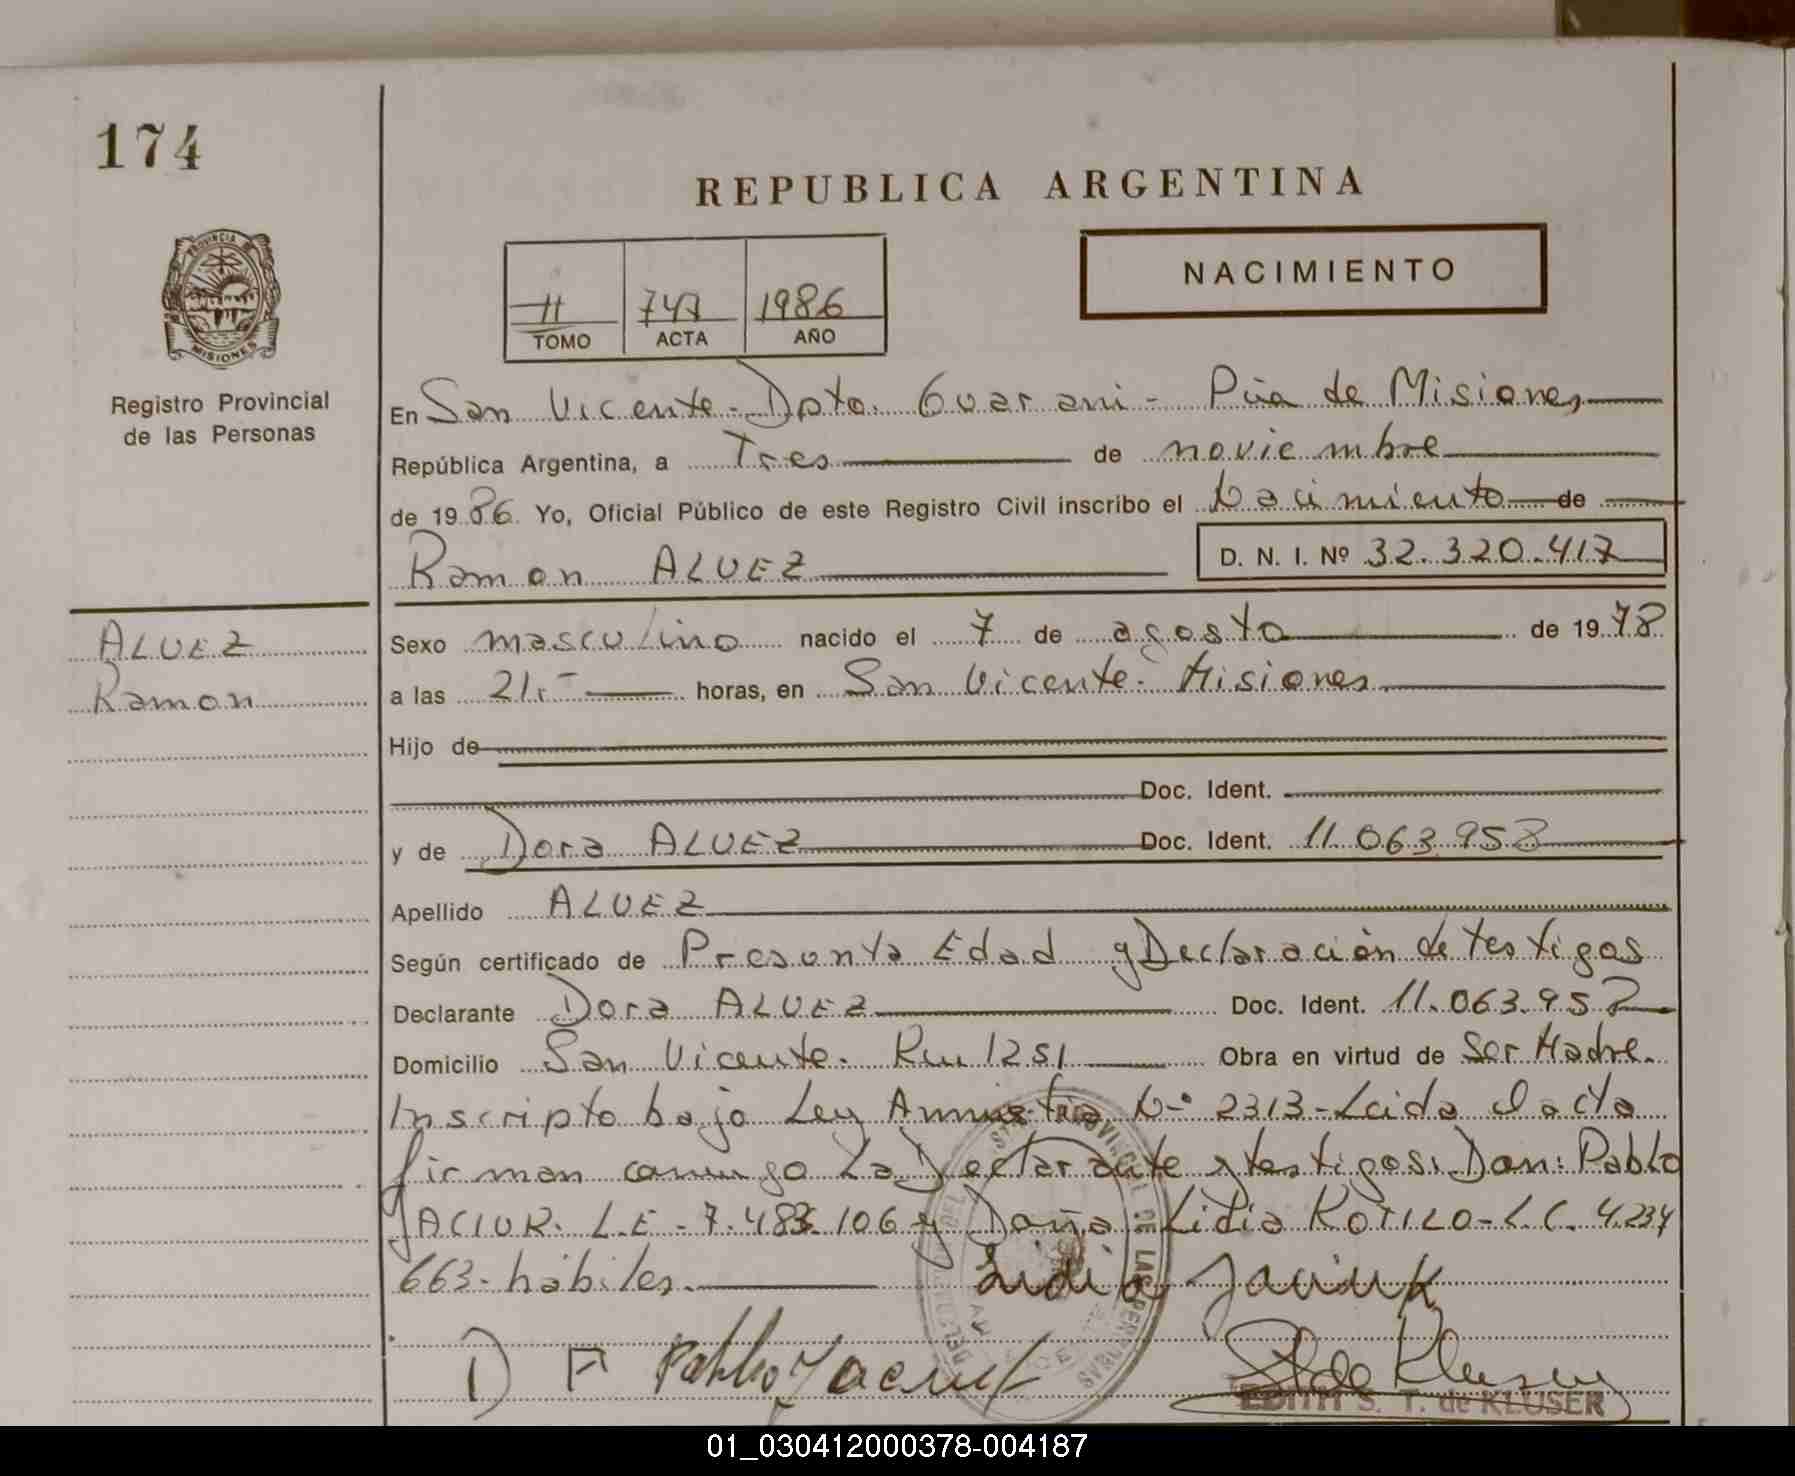 174
REPUBLICA ARGENTINA
NACIMIENTO
II 747 1986
TOMO ACTA AÑO
PROVINCIA DE
MISIONES
Registro Provincial
de las Personas
En San Vicente - Dpto. Guarani - Pcia de Misiones
República Argentina, a Tres de noviembre
de 1986. Yo, Oficial Público de este Registro Civil inscribo el Nacimiento de
Ramon ALVEZ D. N. I. Nº 32.320.417
ALVEZ
Ramon
Sexo masculino nacido el 7 de agosto de 1978
a las 21.- horas, en San Vicente - Misiones
Hijo de
Doc. Ident.
y de Dora ALVEZ Doc. Ident. 11.063.958
Apellido ALVEZ
Según certificado de Presunta Edad y Declaración de testigos
Declarante Dora ALVEZ Doc. Ident. 11.063.958
Domicilio San Vicente. Km 1251 Obra en virtud de Ser Madre.
Inscripto bajo Ley Amnistia N-º 2313 - Leida el acta
firman conmigo La Declarante y testigos: Don: Pablo
JACIUK. L.E - 7.483.106 y Doña Lidia KOTILO - L.C. 4.234
663 - hábiles.
Lidia Jaciuk
D A Pablo Jaciuk
EDITH S. T. de KLUSER
01_030412000378-004187